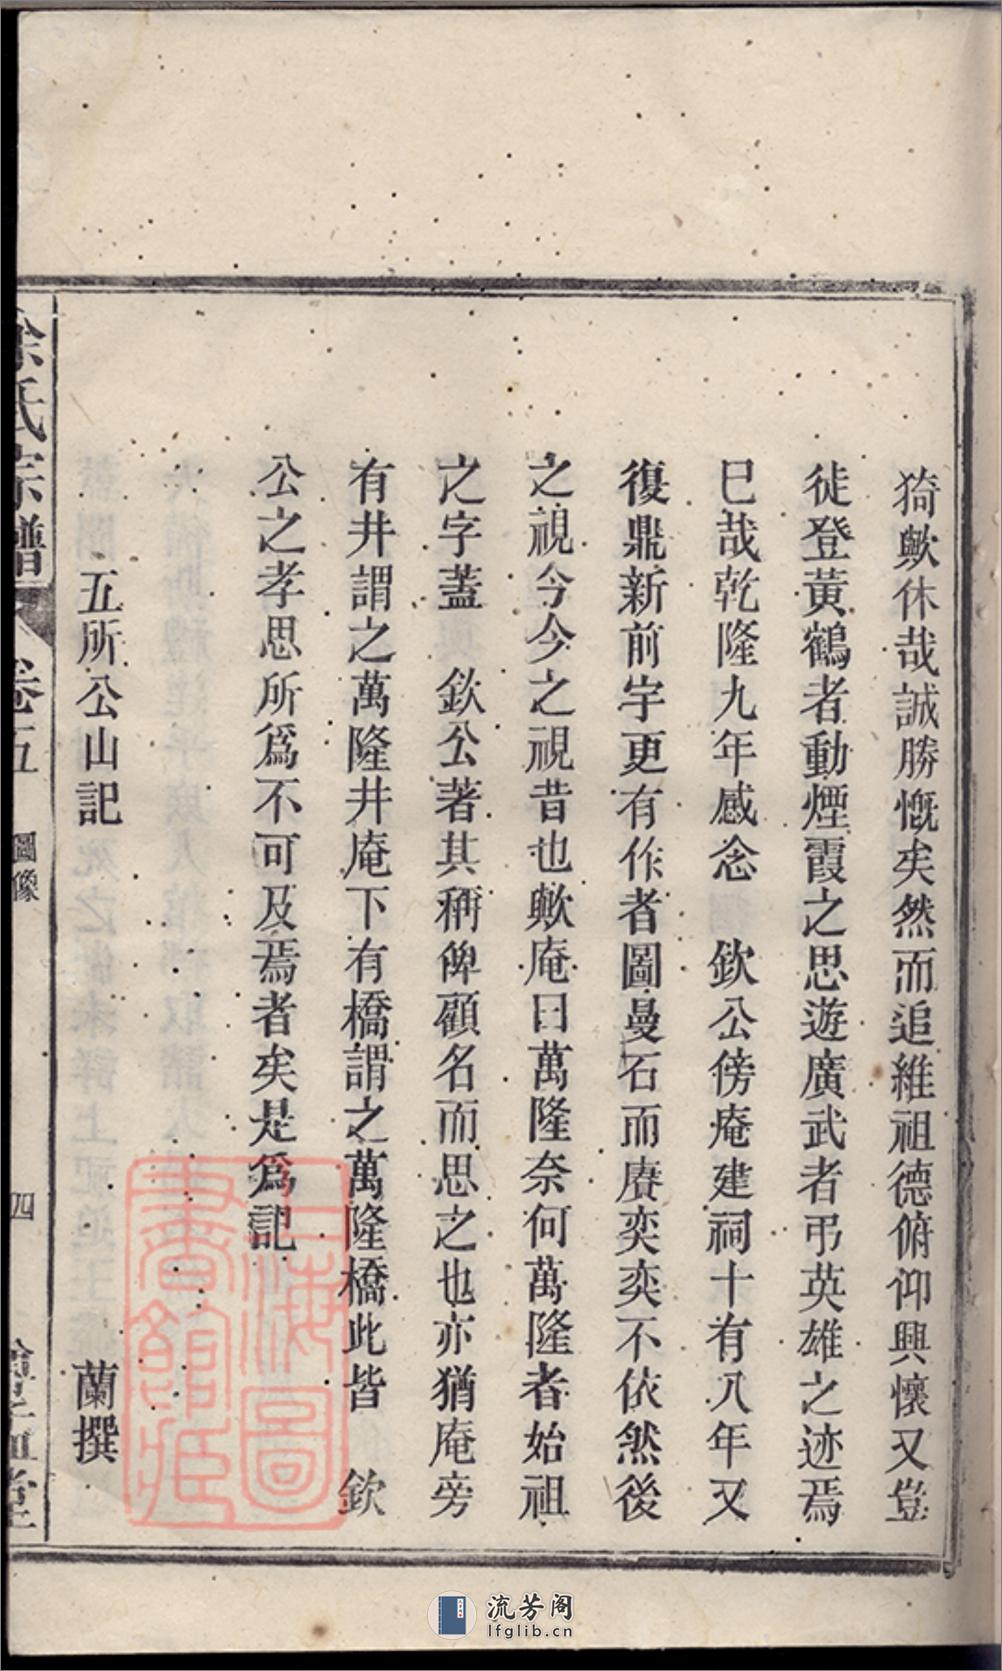 猗歟休哉誠勝慨矣然而追維祖德俯仰興懷又豈
徒登黃鶴者動煙霞之思遊廣武者弔英雄之迹焉
巳哉乾隆九年感念 欽公傍庵建祠十有八年又
復鼎新前宇更有作者圖曼石而賡奕奕不依然後
之視今今之視昔也歟庵曰萬隆奈何萬隆者始祖
之字蓋 欽公著其稱俾顧名而思之也亦猶庵旁
有井謂之萬隆井庵下有橋謂之萬隆橋此皆 欽
公之孝思所爲不可及焉者矣是爲記
五所公山記 蘭撰
氏宗譜 卷五 圖像 四
上海圖書館藏
流芳阁
lfglib.cn